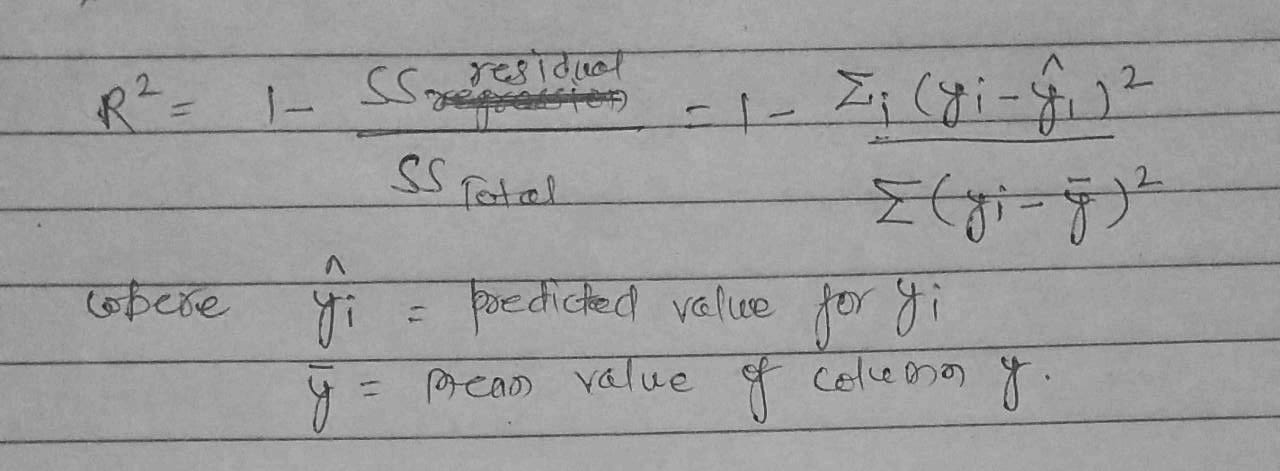 R² = 1 - SS residual / SS Total = 1 - Σi (yi - ŷi)² / Σ(yi - ȳ)²
where ŷi = predicted value for yi
ȳ = mean value of column y.